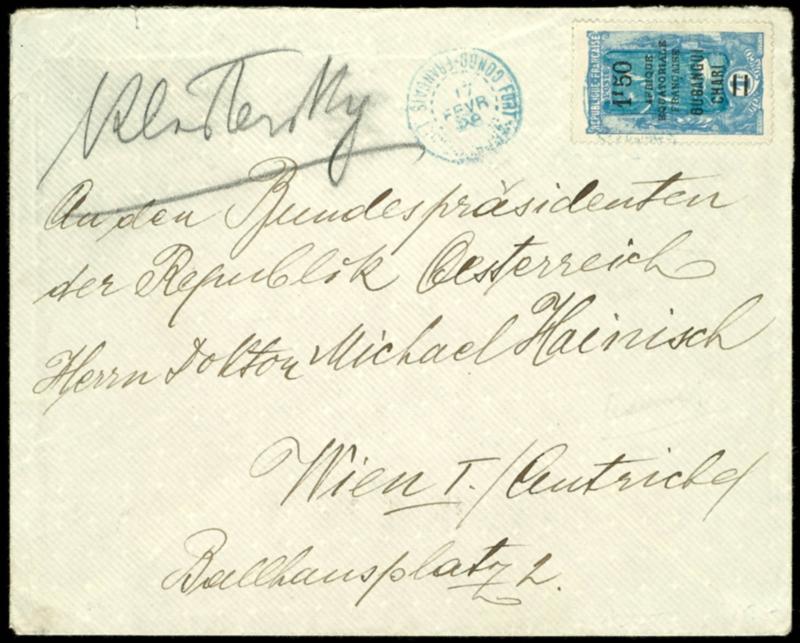 CONGO-FRANÇAIS FORT
17
FEVR
REPUBLIQUE FRANÇAISE
POSTES
1F50
AFRIQUE
EQUATORIALE
FRANÇAISE
OUBANGUI
CHARI
An den Bundespräsidenten
der Republik Oesterreich
Herrn Doktor Michael Hainisch
Wien I. (Autriche)
Ballhausplatz 2.